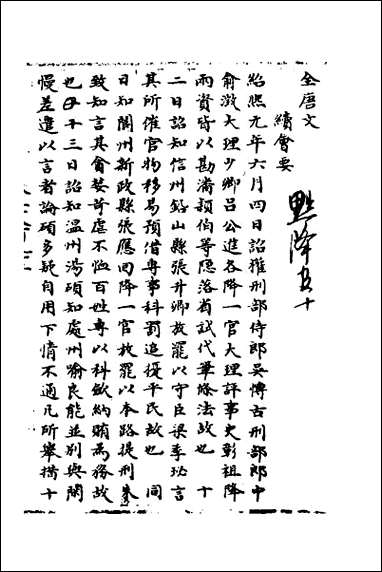 全唐文
續會要
黜降五十
紹熙元年六月四日詔權刑部侍郎吳博古刑部郎中
俞澂大理少卿呂公進各降一官大理評事史彰祖降
兩資皆以勘潘頴伯等隱落省試代筆條法故也 十
二日詔知信州鉛山縣張升卿放罷以守臣梁季珌言
其所催官物移易預借專事科罰追擾平民故也 同
日知閬州新政縣張應回降一官放罷以本路提刑
致知言其貪婪苛虐不恤百姓專以科斂納賄爲務故
也 十三日詔知温州湯碩知處州喻良能並別與閑
慢差遣以言者論碩多疑自用下情不通凡所舉措十